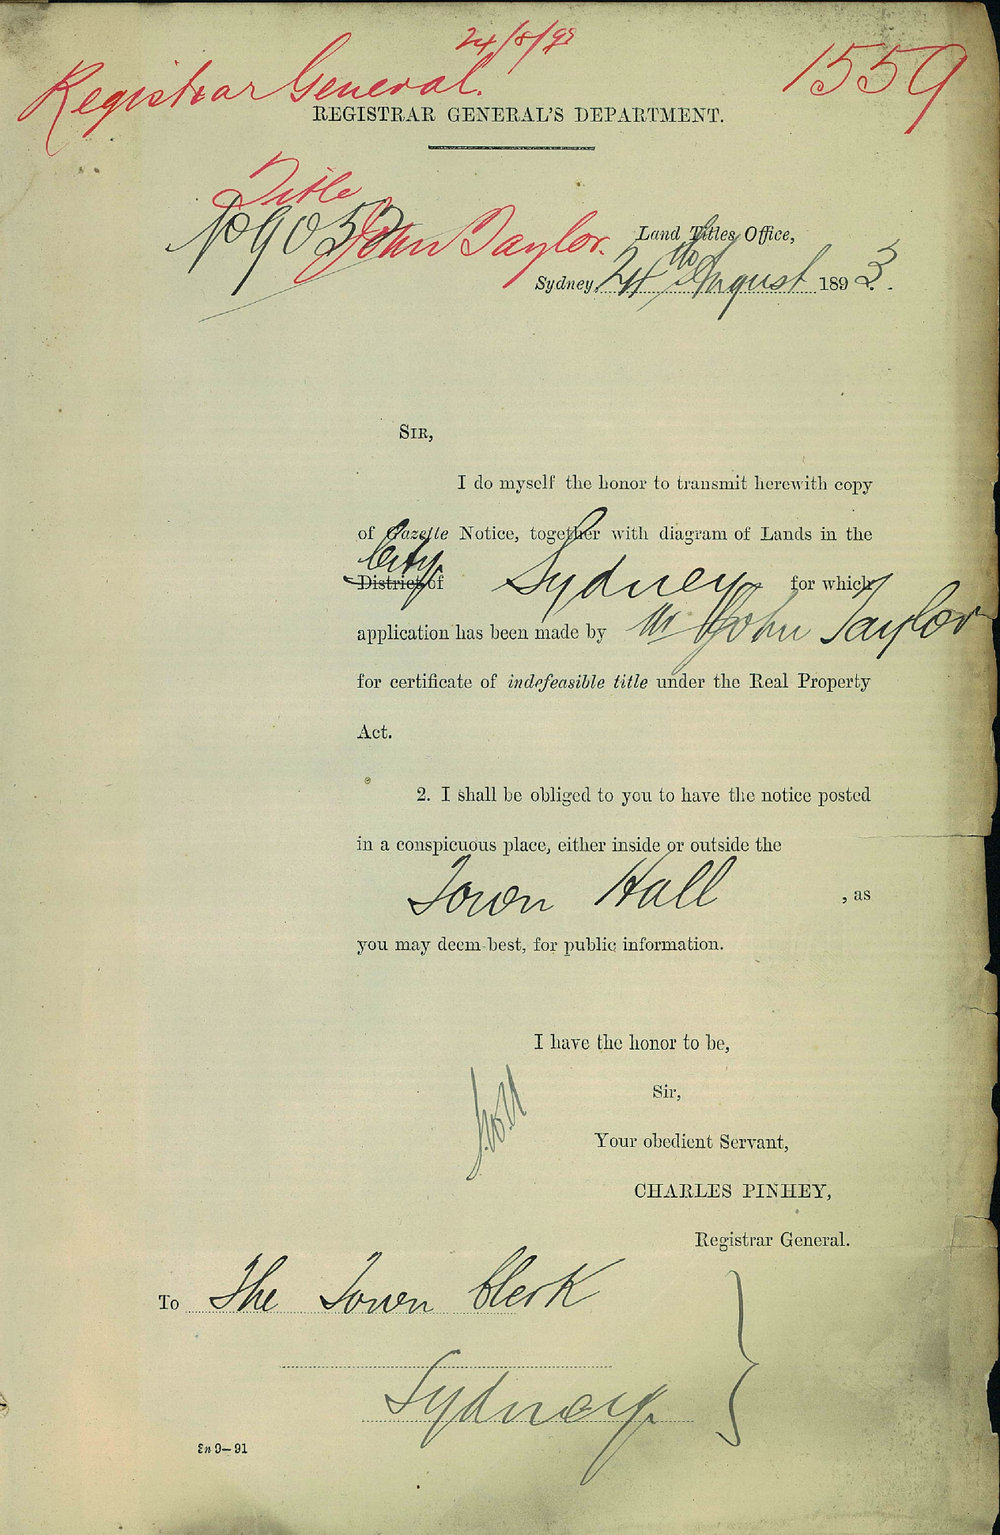 24/8/93
Registrar General.
1559
REGISTRAR GENERAL'S DEPARTMENT.
Title
No 9052
John Taylor.
Land Titles Office,
Sydney, 24th August 1893.
SIR,
I do myself the honor to transmit herewith copy
of Gazette Notice, together with diagram of Lands in the
City
District of Sydney for which
application has been made by Mr John Taylor
for certificate of indefeasible title under the Real Property
Act.
2. I shall be obliged to you to have the notice posted
in a conspicuous place, either inside or outside the
Town Hall , as
you may deem best, for public information.
I have the honor to be,
Sir,
Your obedient Servant,
CHARLES PINHEY,
Registrar General.
To The Town Clerk
Sydney.
9—91